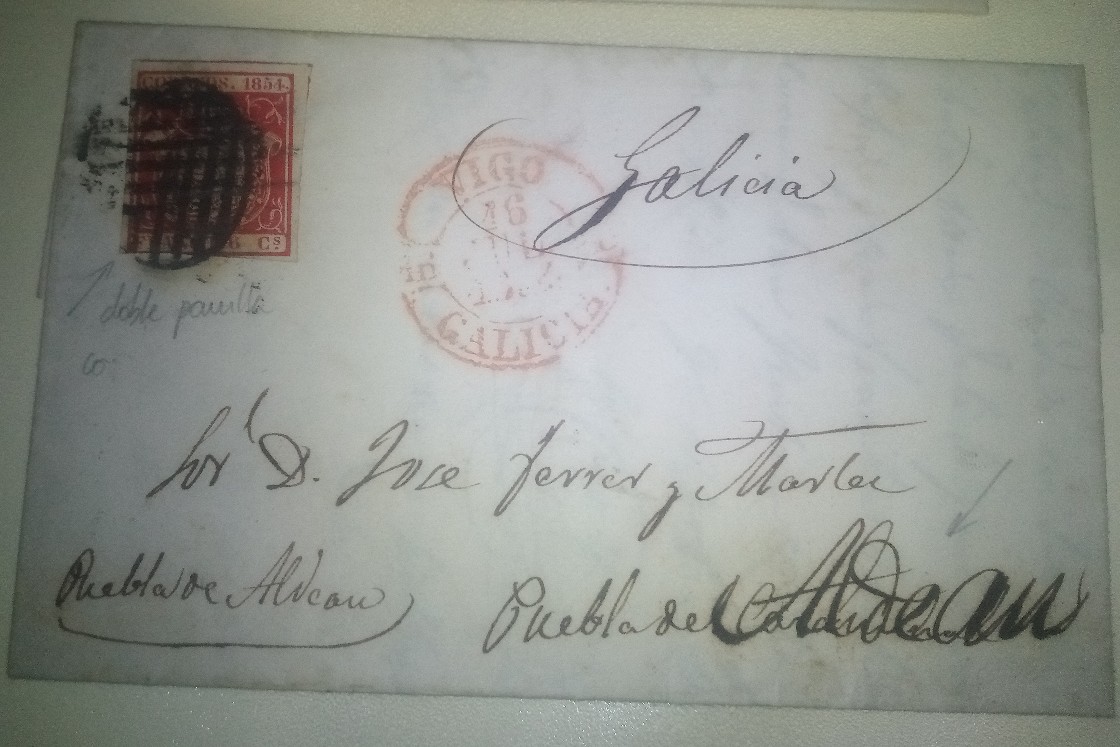 CORREOS. 1854.
FRANCO 6 Cs.
VIGO
16
GALICIA.
Galicia
doble parrilla
Sor. D. Jose Ferrer y
Puebla de Aldean
Puebla del Aldean